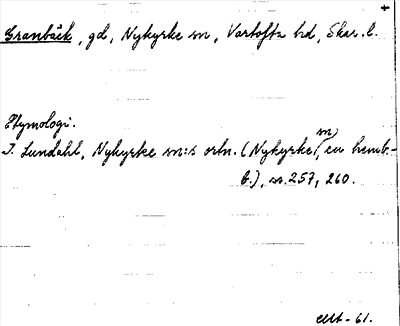 Granbäck, gd, Nykyrke sn, Vartofta hd, Skar. l.
Etymologi.
I. Lundahl, Nykyrke sn:s ortn. (Nykyrke sn, en hembb.), s. 257, 260.
-61.